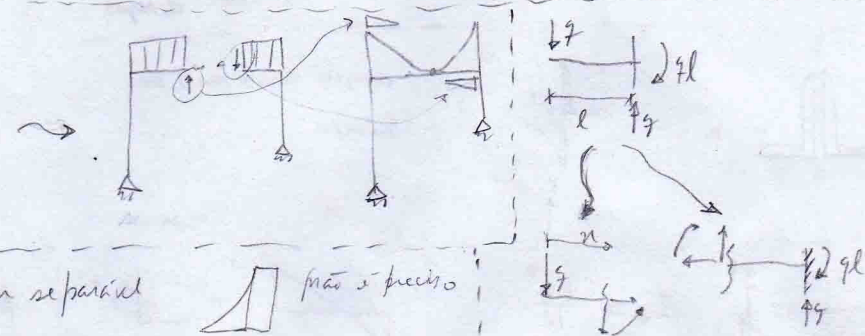 q
ql
l
q
x
q
ql
q
separável
não é preciso